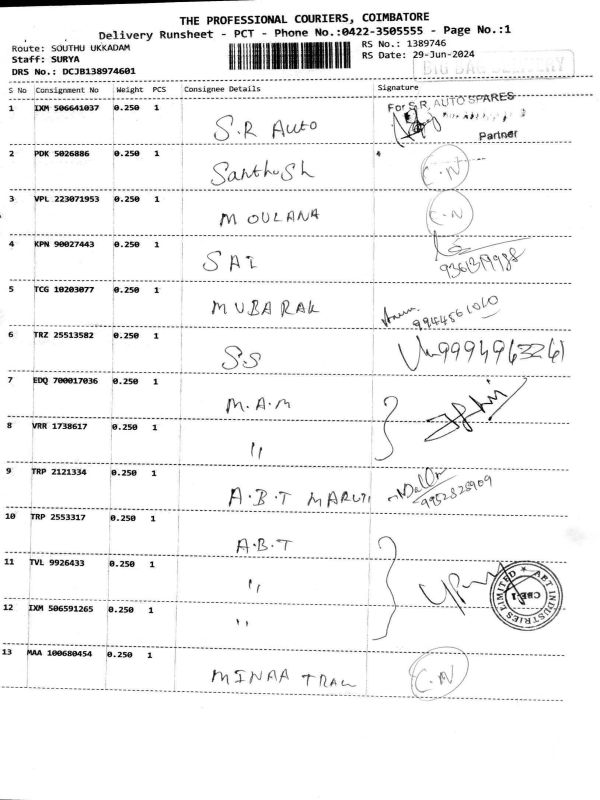 THE PROFESSIONAL COURIERS, COIMBATORE
Delivery Runsheet - PCT - Phone No.:0422-3505555 - Page No.:1
Route: SOUTHU UKKADAM
RS No.: 1389746
Staff: SURYA
RS Date: 29-Jun-2024
DRS No.: DCJB138974601
S No Consignment No Weight PCS Consignee Details Signature
1 IXM 506641037 0.250 1 S.R Auto
For S.R. AUTO SPARES
Partner
2 PDK 5026886 0.250 1 Santhosh C.N
3 VPL 223071953 0.250 1 MOULANA C.N
4 KPN 90027443 0.250 1 SAI
5 TCG 10203077 0.250 1 MUBARAK 9944561010
6 TRZ 25513582 0.250 1 SS 9994963261
7 EDQ 700017036 0.250 1 M.A.M
8 VRR 1738617 0.250 1 ,,
9 TRP 2121334 0.250 1 A.B.T MARUTI 9952828909
10 TRP 2553317 0.250 1 A.B.T
11 TVL 9926433 0.250 1 ,,
12 IXM 506591265 0.250 1 ,,
ABT INDUSTRIES LIMITED ★
CBE-1
13 MAA 100680454 0.250 1 MINAA TRAL C.N